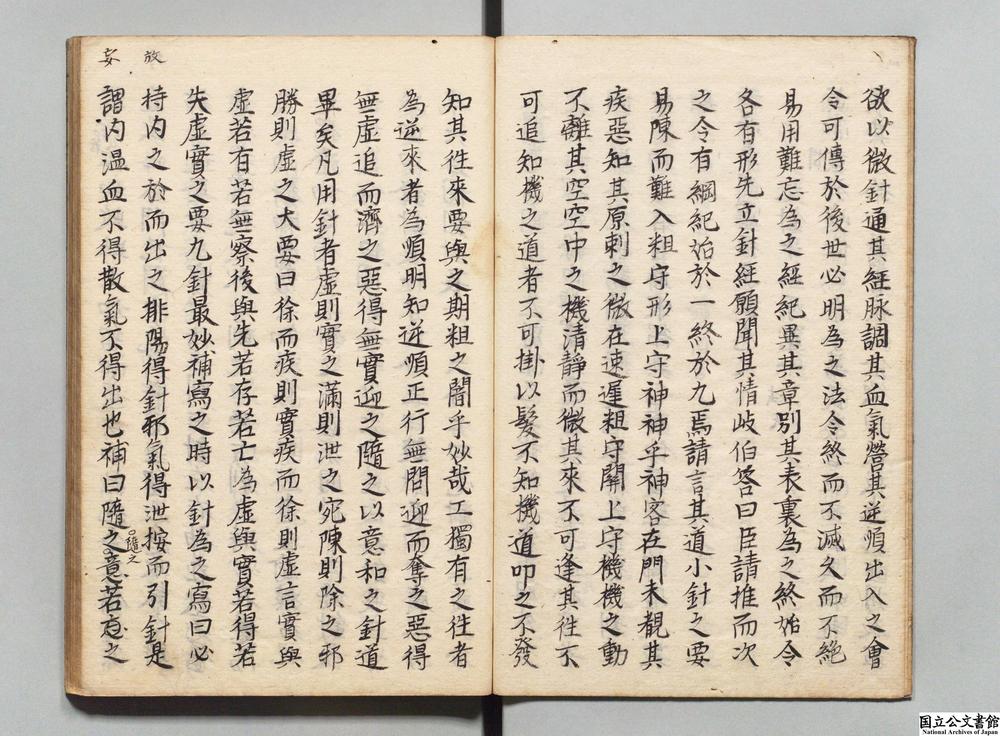 欲以微針通其経脉調其血氣營其逆順出入之會
令可傳於後世必明為之法令終而不滅久而不絶
易用難忘為之経紀異其章別其表裏為之終始令
各有形先立針経願聞其情岐伯答曰臣請推而次
之令有綱紀治於一終於九焉請言其道小針之要
易陳而難入粗守形上守神神乎神客在門未覩其
疾惡知其原刺之微在速遲粗守開上守機機之動
不離其空空中之機清靜而微其來不可逢其往不
可追知機之道者不可掛以髮不知機道叩之不發
知其往來要與之期粗之闇乎妙哉工獨有之往者
為逆來者為順明知逆順正行無問迎而奪之惡得
無虚追而濟之惡得無實迎之隨之以意和之針道
畢矣凡用針者虚則實之滿則泄之宛陳則除之邪
勝則虚之大要曰徐而疾則實疾而徐則虚言實與
虚若有若無察後與先若存若亡為虚與實若得若
失虚實之要九針最妙補寫之時以針為之寫曰必
持内之於而出之排陽得針邪氣得泄按而引針是
謂内温血不得散氣不得出也補曰隨之意若忘之
隨之
放
妄
国立公文書館
National Archives of Japan